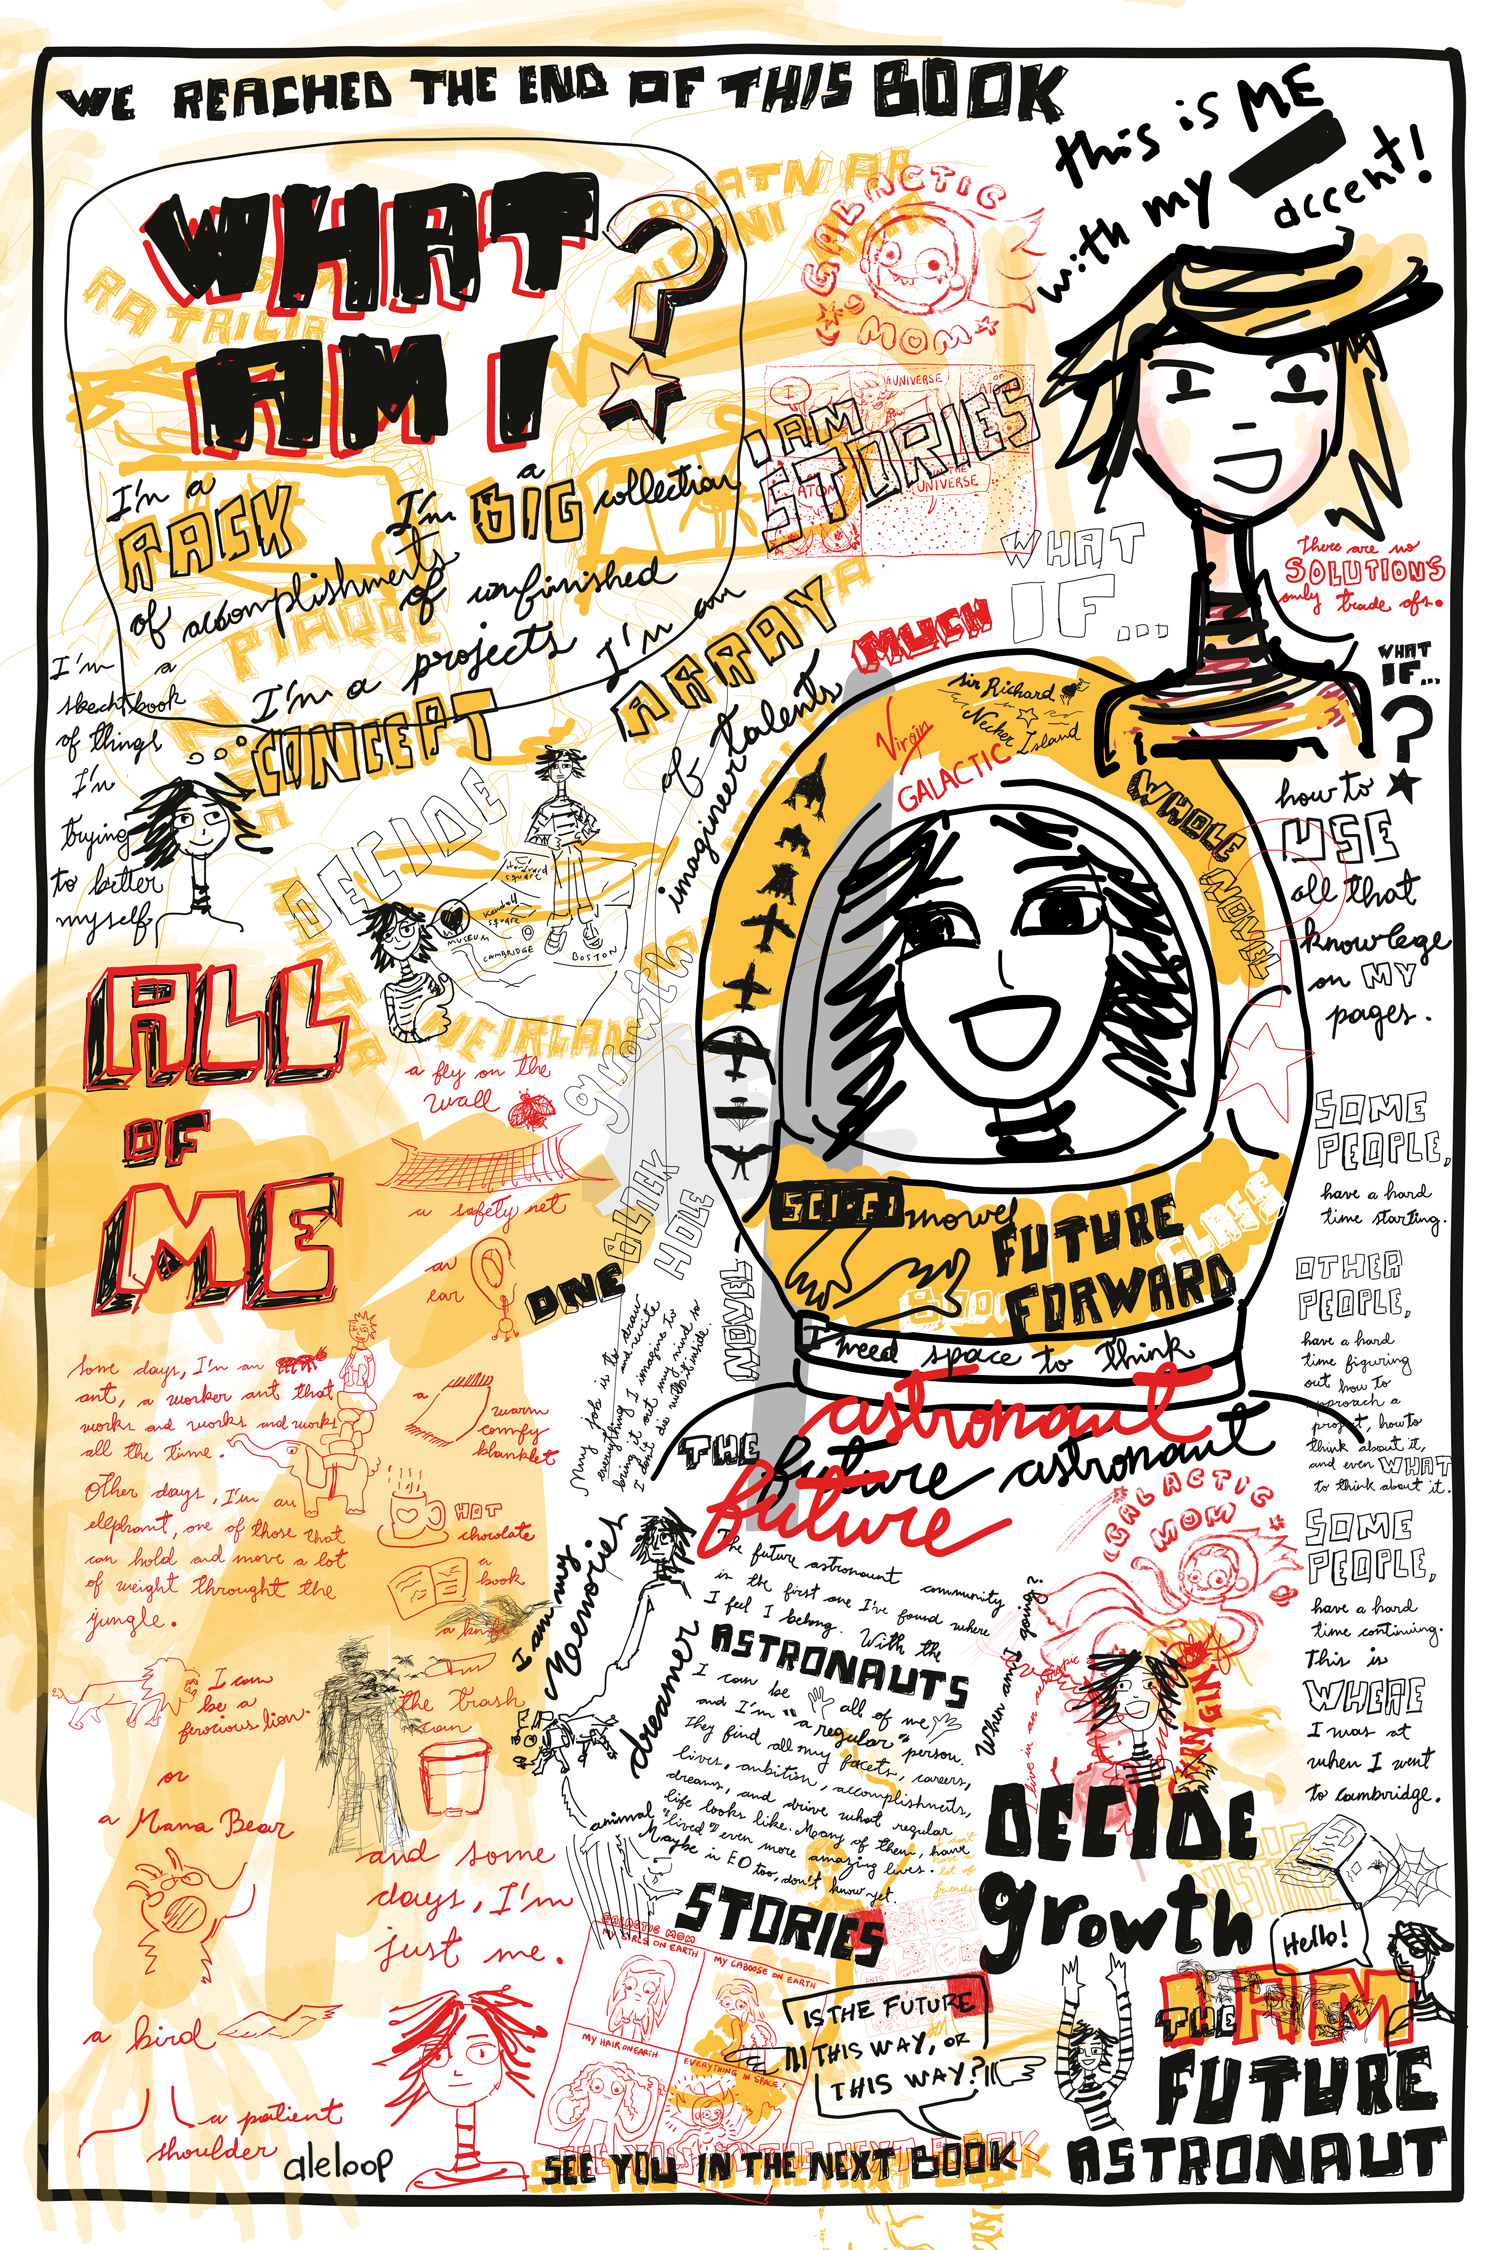 WE REACHED THE END OF THIS BOOK
this is ME
with my
accent!
WHAT
AM I ?
GALACTIC
MOM
I AM
STORIES
UNIVERSE
ATOM
UNIVERSE
I'm a
RACK
of accomplishments
I'm a BIG collection
of unfinished
projects
I'm an
ARRAY
of talents
imagineer
I'm a
CONCEPT
I'm a
skechtbook
of things
I'm
trying
to better
myself
DECIDE
Harvard
square
Kendall
square
MUSEUM
CAMBRIDGE
BOSTON
WHAT
IF...
There are no
SOLUTIONS
only trade ofs.
WHAT
IF...
?
how to
USE
all that
knowlege
on MY
pages.
MUCH
Sir Richard
Necker Island
Virgin
GALACTIC
WHOLE
NOVEL
ALL
OF
ME
a fly on the
wall
a safety net
an
ear
growth
BLACK
HOLE
ONE
NOVEL
SCI-FI
mowel
FUTURE
FORWARD
CLASS
BOO
I need space to think
astronaut
THE future astronaut
future
my job is to draw
and write
everything I imagine to
bring it out my mind so
I don't die with it inside.
SOME
PEOPLE,
have a hard
time starting.
OTHER
PEOPLE,
have a hard
time figuring
out how to
approach a
project, how to
think about it,
and even WHAT
to think about it.
SOME
PEOPLE,
have a hard
time continuing.
This is
WHERE
I was at
when I went
to cambridge.
Some days, I'm an
ant, a worker ant that
works and works and works
all the time.
Other days, I'm an
elephant, one of those that
can hold and move a lot
of weight throught the
jungle.
a
warm
comfy
blanklet
HOT
chocolate
a
book
a knife
the trash
can
I can
be a
ferocious lion.
or
a Mama Bear
a bird
a patient
shoulder
and some
days, I'm
just me.
aleloop
I am my
Memories
dreamer
animal
The future astronaunt community
is the first one I've found where
I feel I belong. With the
ASTRONAUTS
I can be all of me
and I'm "a regular" person.
They find all my facets, careers,
lives, ambition, accomplishments,
dreams, and drive what regular
life looks like. Many of them, have
"lived" even more amazing lives.
Maybe in EO too, don't know yet.
STORIES
I don't
have a
lot of
friends
GALACTIC
MOM
When am I going?
I live in an
HANGING
DECIDE
growth
Hello!
I AM
THE
FUTURE
ASTRONAUT
GALACTIC MOM
MY GIRLS ON EARTH
MY CABOOSE ON EARTH
MY HAIR ON EARTH
EVERYTHING IN SPACE!
IS THE FUTURE
THIS WAY, OR
THIS WAY?
SEE YOU IN THE NEXT BOOK